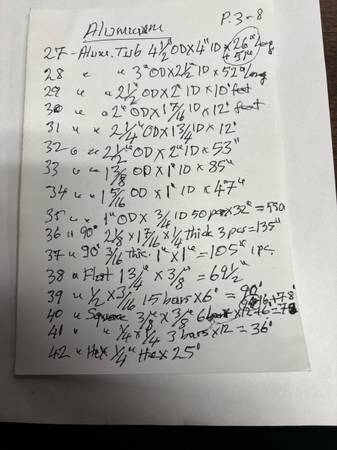 Aluminum
P.3-8
27 - Alum. Tub 4 1/2" OD x 4" ID x 26" long + 51"
28 " " 3" OD x 2 1/2" ID x 52" long
29 " " 2 1/2" OD x 2" ID x 10' feet
30 " 2" OD x 1 7/16 ID x 12' feet
31 " " 2 1/4" OD x 1 3/4 ID x 12'
32 " " 2 1/2" OD x 2" ID x 53"
33 " " 1 3/8 OD x 1" ID x 85"
34 " " 1 5/16 OD x 1" ID x 47"
35 " " 1" OD x 3/4 ID 50 pcs x 32" =
36 " 90° 2 1/8 x 1 7/16 x 1/4 thick 3 pcs = 135"
37 " 90° 3/16 thic. 1" x 1" = 105" 1 pc.
38 " Flat 1 3/4" x 3/8" = 69 1/2"
39 " 1/2 x 3/16 15 bars x 6' = 90'
40 " Square 3/8" x 3/8" 6 x 12 +6' = 78'
41 " " 1/4 x 1/4 3 bars x 12 = 36'
42 " Hex 1/4" Hex x 25'